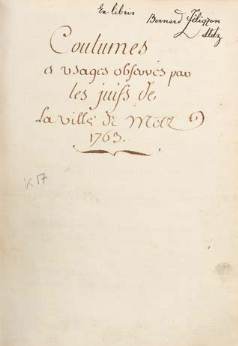 Ex libris
Bernard
Metz
Coutumes
& usages observés par
les juifs de
La ville de Metz
1763.